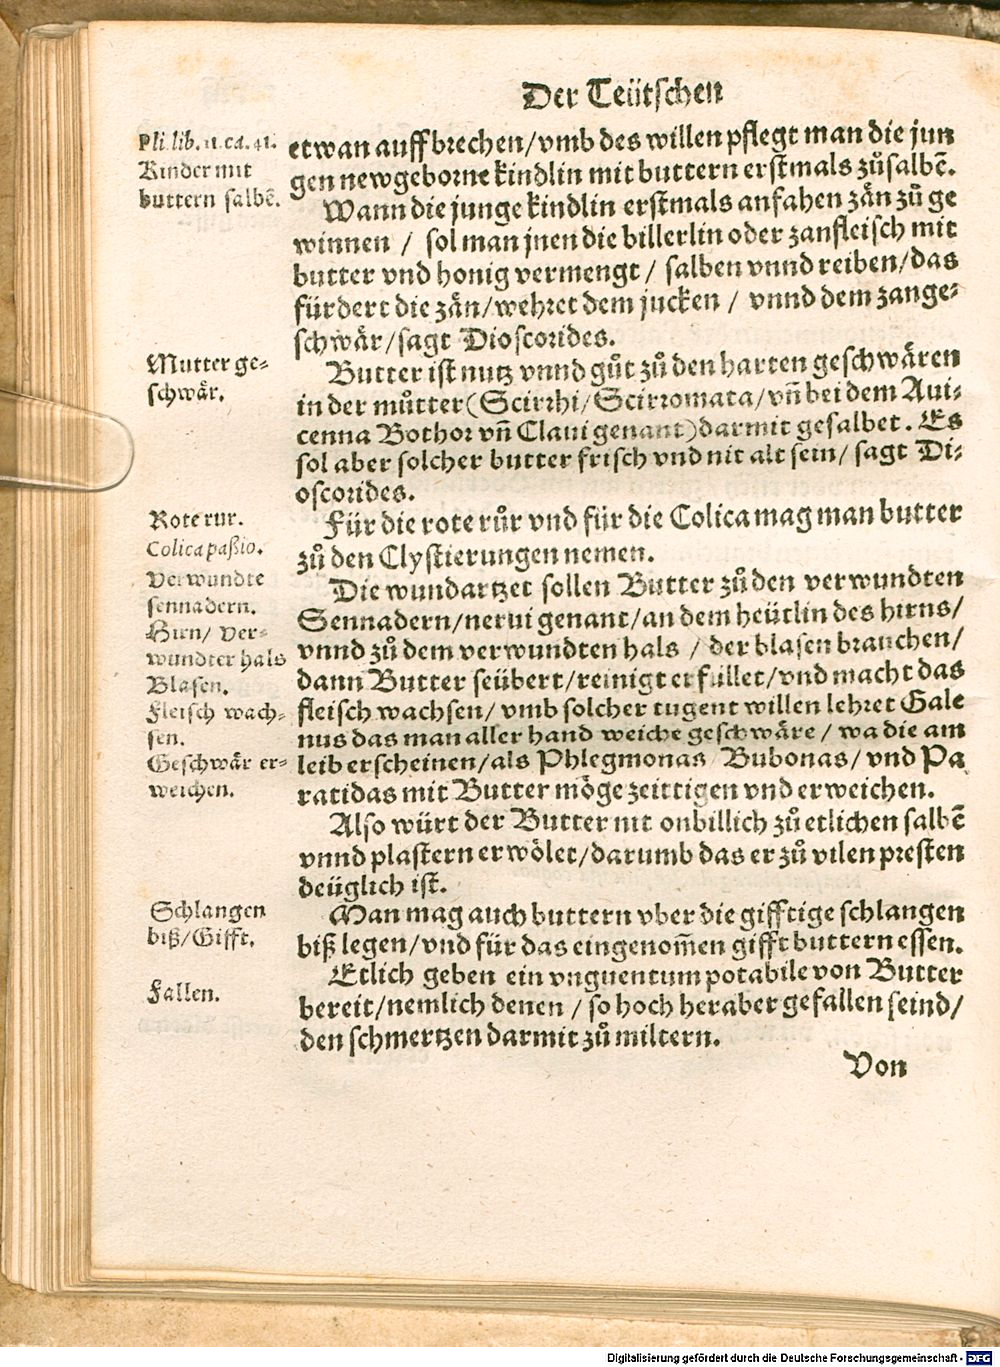 Der Teütschen
Pli lib. 11. ca. 41.
Kinder mit
buttern salbẽ.
etwan auffbrechen/vmb des willen pflegt man die jun
gen newgeborne kindlin mit buttern erstmals zůsalbẽ.
Wann die junge kindlin erstmals anfahen zän zů ge
winnen / sol man jnen die billerlin oder zanfleisch mit
butter vnd honig vermengt / salben vnnd reiben/das
fürdert die zän/wehret dem jucken / vnnd dem zange-
schwär/sagt Dioscorides.
Mutter ge-
schwär.
Butter ist nutz vnnd gůt zů den harten geschwären
in der můtter(Scirrhi/Scirromata/vñ bei dem Aui-
cenna Bothor vñ Claui genant)darmit gesalbet. Es
sol aber solcher butter frisch vnd nit alt sein/ sagt Di-
oscorides.
Rote rur.
Colica paßio.
Für die rote růr vnd für die Colica mag man butter
zů den Clystierungen nemen.
Verwundte
sennadern.
Hirn/ ver-
wundter hals
Blasen.
Fleisch wach-
sen.
Geschwär er-
weichen.
Die wundartzet sollen Butter zů den verwundten
Sennadern/nerui genant/an dem heütlin des hirns/
vnnd zů dem verwundten hals / der blasen brauchen/
dann Butter seübert/reinigt erfüllet/vnd macht das
fleisch wachsen/ vmb solcher tugent willen lehret Gale
nus das man aller hand weiche geschwäre / wa die am
leib erscheinen/als Phlegmonas/Bubonas/ vnd Pa
ratidas mit Butter möge zeittigen vnd erweichen.
Also würt der Butter nit onbillich zů etlichen salbẽ
vnnd plastern erwölet/darumb das er zů vilen presten
deüglich ist.
Schlangen
biß/Gifft.
Man mag auch buttern vber die gifftige schlangen
biß legen/vnd für das eingenom̃en gifft buttern essen.
Fallen.
Etlich geben ein vnguentum potabile von Butter
bereit/nemlich denen / so hoch heraber gefallen seind/
den schmertzen darmit zů miltern.
Von
Digitalisierung gefördert durch die Deutsche Forschungsgemeinschaft - DFG